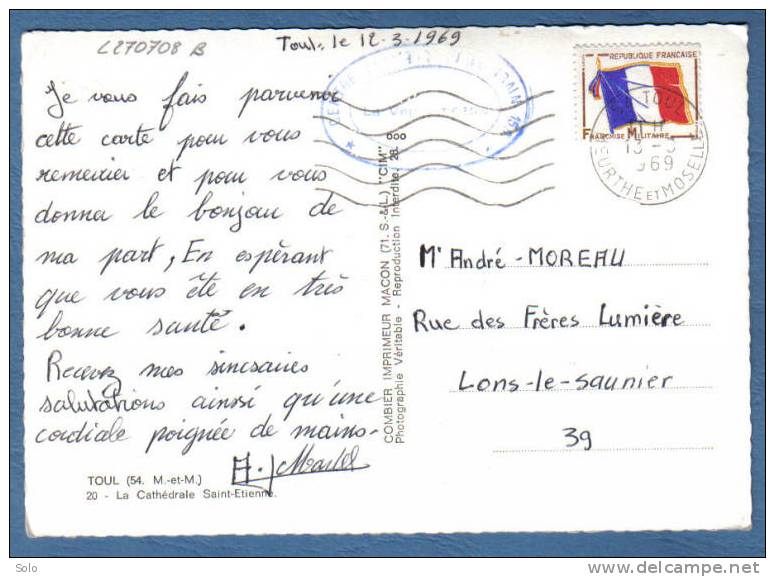 L270708 B
Toul, le 12-3-1969
Je vous fais parvenir
cette carte pour vous
remercier et pour vous
donner le bonjour de
ma part, En espérant
que vous ête en très
bonne santé.
Recevez mes sincsaires
salutations ainsi qu'une
cordiale poignée de mains.
TOUL (54. M.-et-M.)
20 - La Cathédrale Saint-Etienne.
COMBIER IMPRIMEUR MACON (71. S.-&-L.) "CIM"
Photographie Véritable - Reproduction Interdite.
REPUBLIQUE FRANCAISE
FRANCHISE MILITAIRE
TOUL
13 - 3
1969
MEURTHE ET MOSELLE
Mr André - MOREAU
Rue des Frères Lumière
Lons-le-saunier
39
delcampe.net
Solo